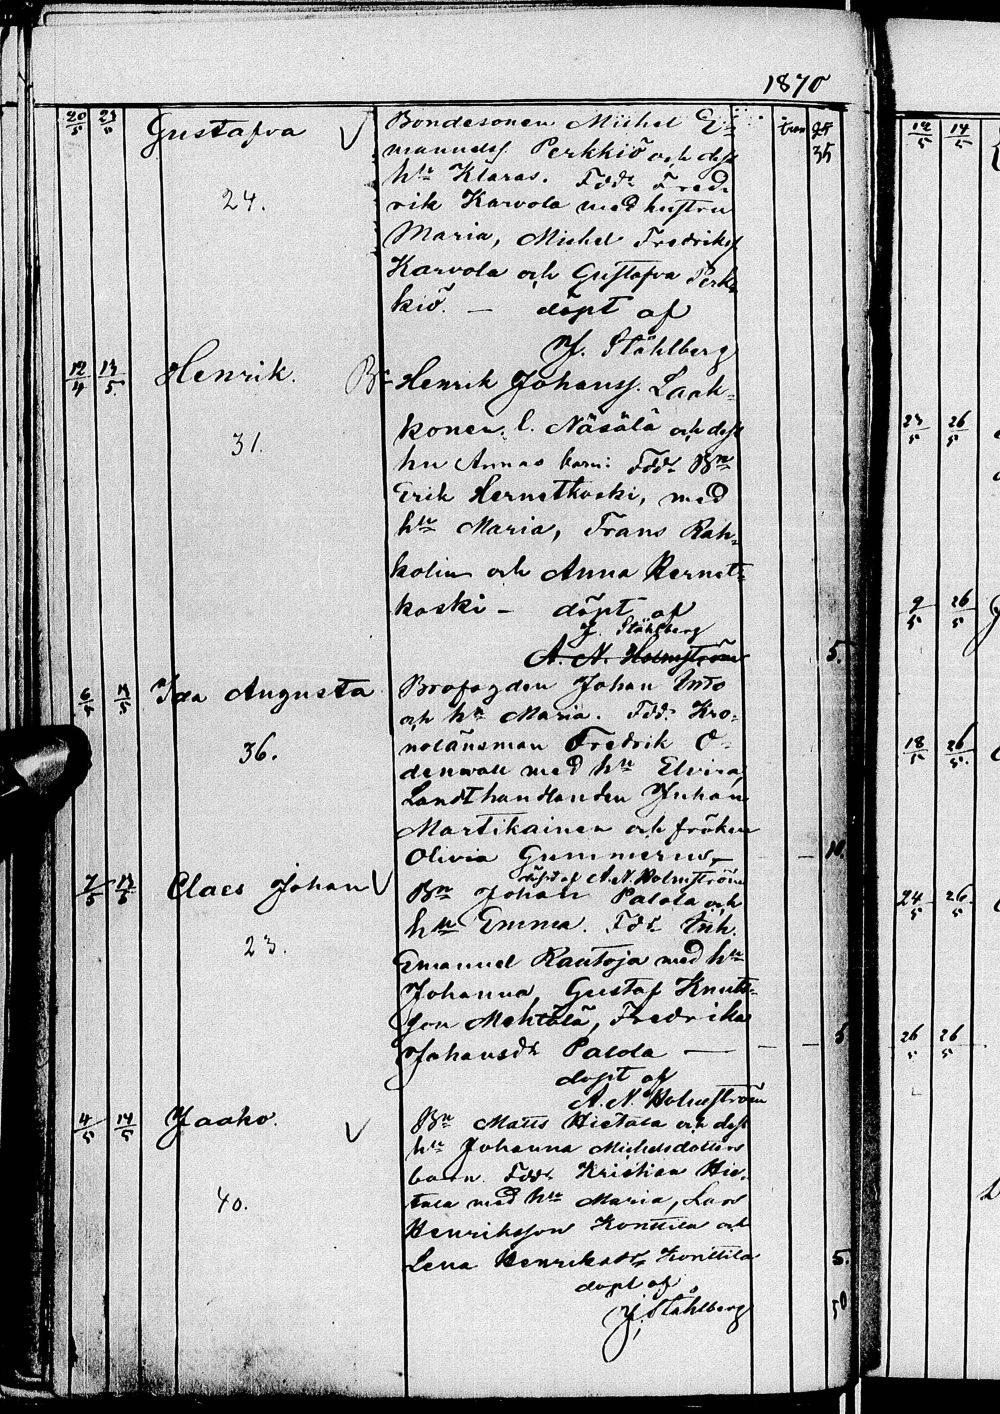 1870
20/5 23/5 Gustafva Bondesonen Michel E= 25
manuelss. Perkkiö och dess 35
24. hu Klaras. Fdd. Fred=
rik Karvola med hustru
Maria, Michel Fredrikss
Karvola och Gustafva Perk=
kiö. — döpt af
J. Ståhlberg
12/4 13/5. Henrik. Bn Henrik Johanss. Laak=
31. konen l. Näsälä och dess
hu Annas barn: Fdd. Bn
Erik Hernetkoski, med
hu Maria, Frans Rah=
kolin och Anna Hernet=
koski — döpt af
J. Ståhlberg
A. N. Holmström 5.
6/5 Ida Augusta Brofogden Johan Unto
och hu Maria. Fdd. Kro=
36. nolänsman Fredrik O=
denwall med hu Elvira,
Landthandlanden Juhan
Martikainen och fröken
Olivia Gummerus, — 10.
döpt af A. N. Holmström
7/5 13/5 Claes Johan Bn Johan Palola och
23. hu Emma. Fdd. Inh.
Emanuel Rautoja med hu
Johanna, Gustaf Knuts=
son Mehtälä, Fredrika
Johansdr Palola — 5
döpt af
A. N. Holmström
4/5 14/5 Jaako. Bn Matts Hietala och dess
hu Johanna Michelsdotters
barn. Fdd. Kristian Hie=
40. tala med hu Maria, Lars
Henriksson Konttila och
Lena Henriksdr Konttila 5.
döpt af
J. Ståhlberg 50
12/5 14/5
23/5 26/5
9/5 26/5
18/5 26/5.
24/5 26/5
26/5 26/5